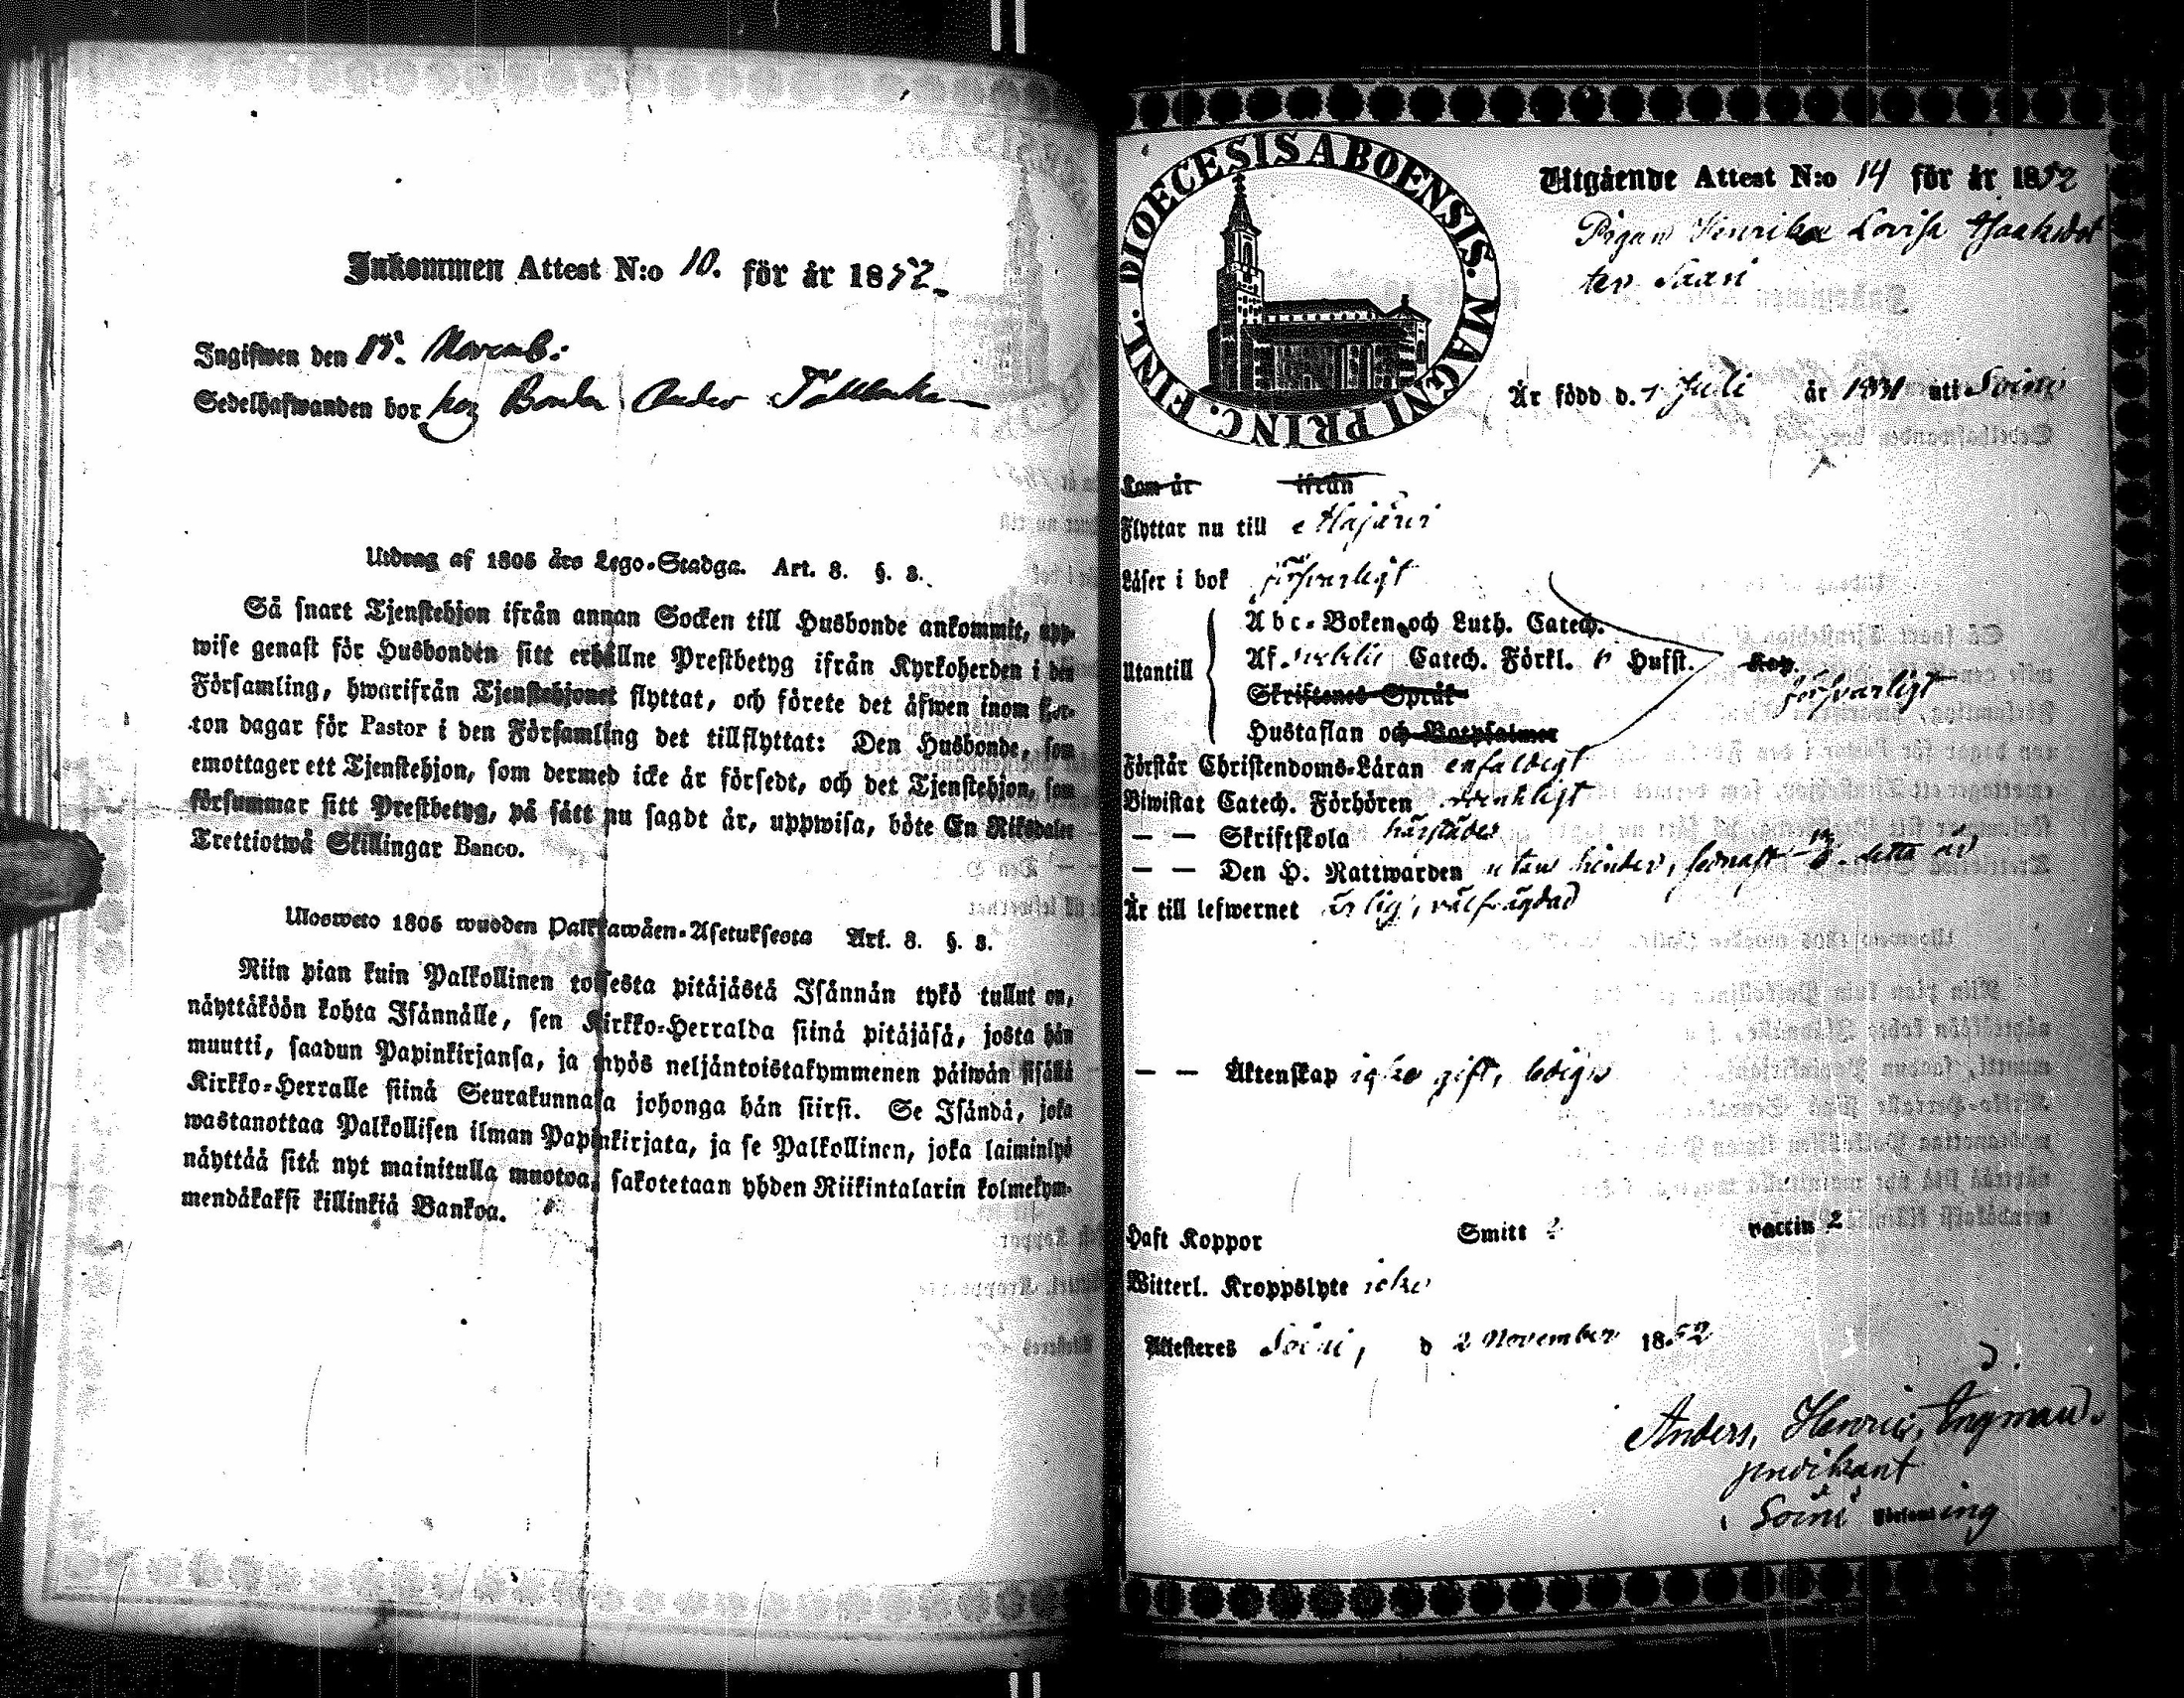 Inkommen Attest N:o 10. för år 1852.
Ingifwen den 15. Novemb:
Sedelhafwanden bor hos Bonden Anders
Utdrag af 1805 års Lego-Stadga. Art. 8. §. 3.
Så snart Tjenstehjon ifrån annan Socken till Husbonde ankommit, upp-
wise genast för Husbonden sitt erhållne Prestbetyg ifrån Kyrkoherden i den
Församling, hwarifrån Tjenstehjonet flyttat, och förete det äfwen inom fjor-
ton dagar för Pastor i den Församling det tillflyttat: Den Husbonde, som
emottager ett Tjenstehjon, som dermed icke är försedt, och det Tjenstehjon, som
försummar sitt Prestbetyg, på sätt nu sagdt är, uppwisa, böte En Riksdaler
Trettiotwå Skillingar Banco.
Ulosweto 1805 wuoden Palkkawäen-Asetuksesta Art. 8. §. 3.
Niin pian kuin Palkollinen toisesta pitäjästä Isännän tykö tullut on,
näyttäköön kohta Isännälle, sen Kirkko-Herralda siinä pitäjäsä, josta hän
muutti, saadun Papinkirjansa, ja myös neljäntoistakymmenen päiwän sisällä
Kirkko-Herralle siinä Seurakunnasa johonga hän siirsi. Se Isändä, joka
wastanottaa Palkollisen ilman Papinkirjata, ja se Palkollinen, joka laiminlyö
näyttää sitä nyt mainitulla muotoa, sakotetaan yhden Riikintalarin kolmekym-
mendäkaksi killinkiä Bankoa.
DIOECESIS ABOENSIS. MAGNI PRINC. FINL.
Utgående Attest N:o 14 för år 1852
Pigan Henrika Lovisa Isaksdot
ter Saari
Är född d. 1 Juli år 1831 uti Soini
Kom år ifrån
Flyttar nu till Alajärvi
Läser i bok försvarligt
Utantill
Abc-Boken och Luth. Catech.
Af Catech. Förkl. Husst. Kap.
försvarligt
Skriftenes Språk
Hustaflan och Botpsalmer
Förstår Christendoms-Läran enfaldigt
Biwistat Catech. Förhören ordentligt
— — Skriftskola härstädes
— — Den H. Nattwarden utan hinder, senast detta år
Är till lefwernet ärlig, välfrägdad
— — Äktenskap icke gift, ledig
Haft Koppor Smitt vaccin 2
Witterl. Kroppslyte icke
Attesteres Soini, d 2 November 1852
Anders, Henric, Ingman
predikant
i Soini Församling